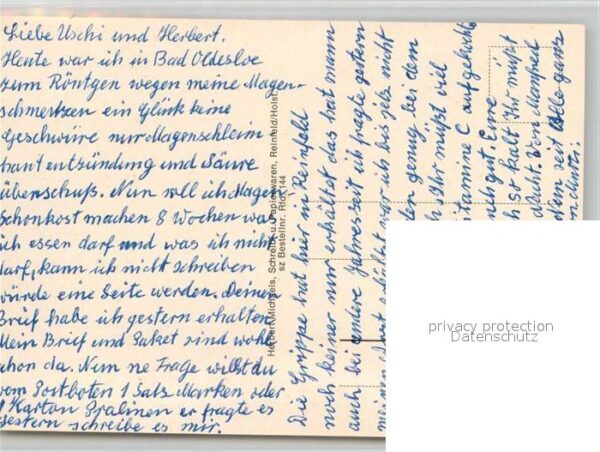 Liebe Uschi und Herbert.
Heute war ich in Bad Oldesloe
zum Röntgen wegen meine Magen-
schmertzen ein Glück keine
Geschwüre nur Magenschleim
haut entzündung und Säure
überschuß. Nun soll ich Magen
Schonkost machen 8 Wochen was
ich essen darf und was ich nicht
darf, kann ich nicht schreiben
würde eine Seite werden. Deinen
Brief habe ich gestern erhalten
Mein Brief und Paket sind wohl
schon da. Nun ne Frage willst du
vom Postboten 1 Satz Marken oder
1 Karton Pralinen er fragte es
gestern schreibe es mir.
Herbert Michaels, Schreib- u. Papierwaren, Reinfeld/Holst.
sz Bestellnr. 144
Die Grippe hat hier in Reinfeld
noch keiner nur erhältet das hat mann
auch bei andere Jahreszeit ich fragte gestern
war ich bis jetz nicht
den genug bei dem
müßt viel
Vitamine C aufgekocht
gut. Eure
so kalt Ihr müßt
Von Manfred
seit Alle ganz
privacy protection
Datenschutz